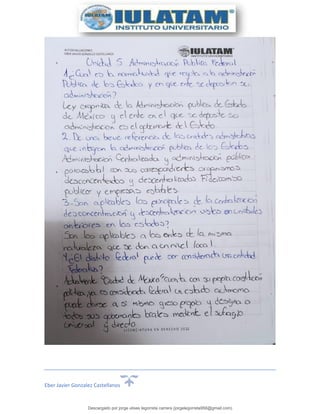 IULATAM
INSTITUTO UNIVERSITARIO
AUTOEVALUACIONES
EBER JAVIER GONZALEZ CASTELLANOS
IULATAM
Unidad 5 Administración Publica Federal
1.-¿Cual es la normatividad que regula a la administración
Publica de los Estados y en que ente se deposita su
administración?
Ley organica de la Administración publica de Estado
de México y el ente en el que se deposita su
administración es el gobernante del Estado.
2. De una breve referencia de las unidades administrativas
que integran la administración publica de los Estados
Administración Centralizada y administración publica
paraestatal con sus correspondientes organismos
desconcentrados y descentralizados Fideicomiso
publicos y empresas estatales
3.-Son aplicables los principales de la centralización
desconcentración y descentralización vistos en unidades
anteriores en los estados?
Son los aplicables a los entes de la misma
naturaleza que se dan a un nivel local.
4.-¿El distrito federal puede ser considerado una entidad
Federativa?
Actualmente "Ciudad de México" cuenta con su propia constitución
politica, ya es considerada federal un estado autonomo
puede dirse a si mismo y designa a
todos sus gobernantes locales mediante el sufragio
universal y directo.
LICENCIATURA EN DERECHO 2022
Eber Javier Gonzalez Castellanos
Descargado por jorge ulises lagorreta carrera (jorgelagorreta988@gmail.com)